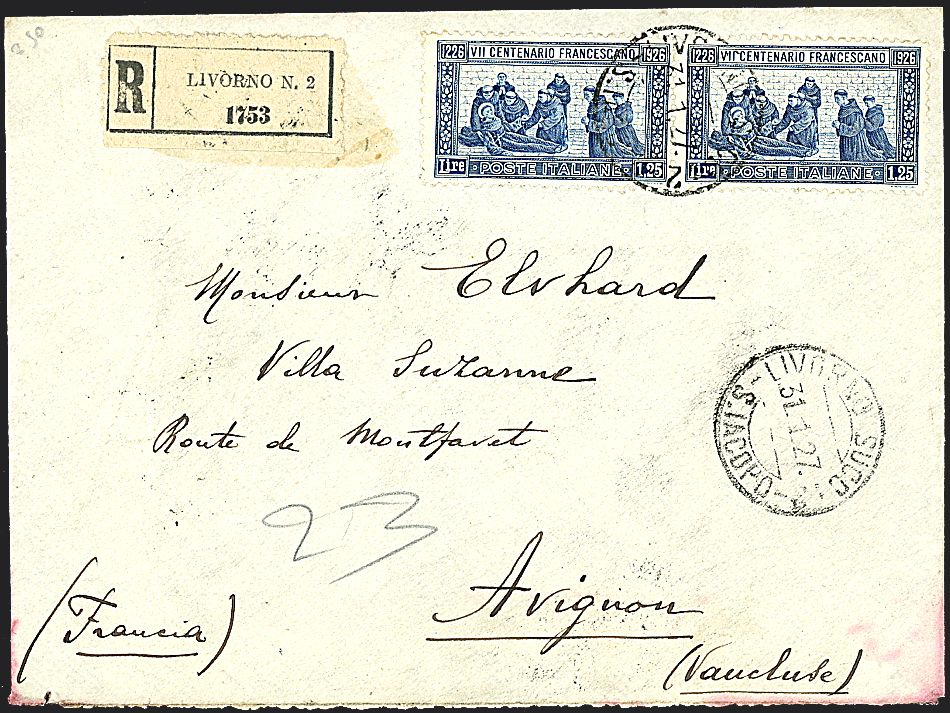 350
R
LIVORNO N. 2
1753
1226 VII CENTENARIO FRANCESCANO 1926
lire POSTE ITALIANE 1.25
1226 VII CENTENARIO FRANCESCANO 1926
lire POSTE ITALIANE 1.25
Monsieur Elshard
Villa Suzanne
Route de Montfavet
LIVORNO SUCC. 2
31.1.27.
S. IACOPO
23
Avignon
(Francia)
(Vaucluse)